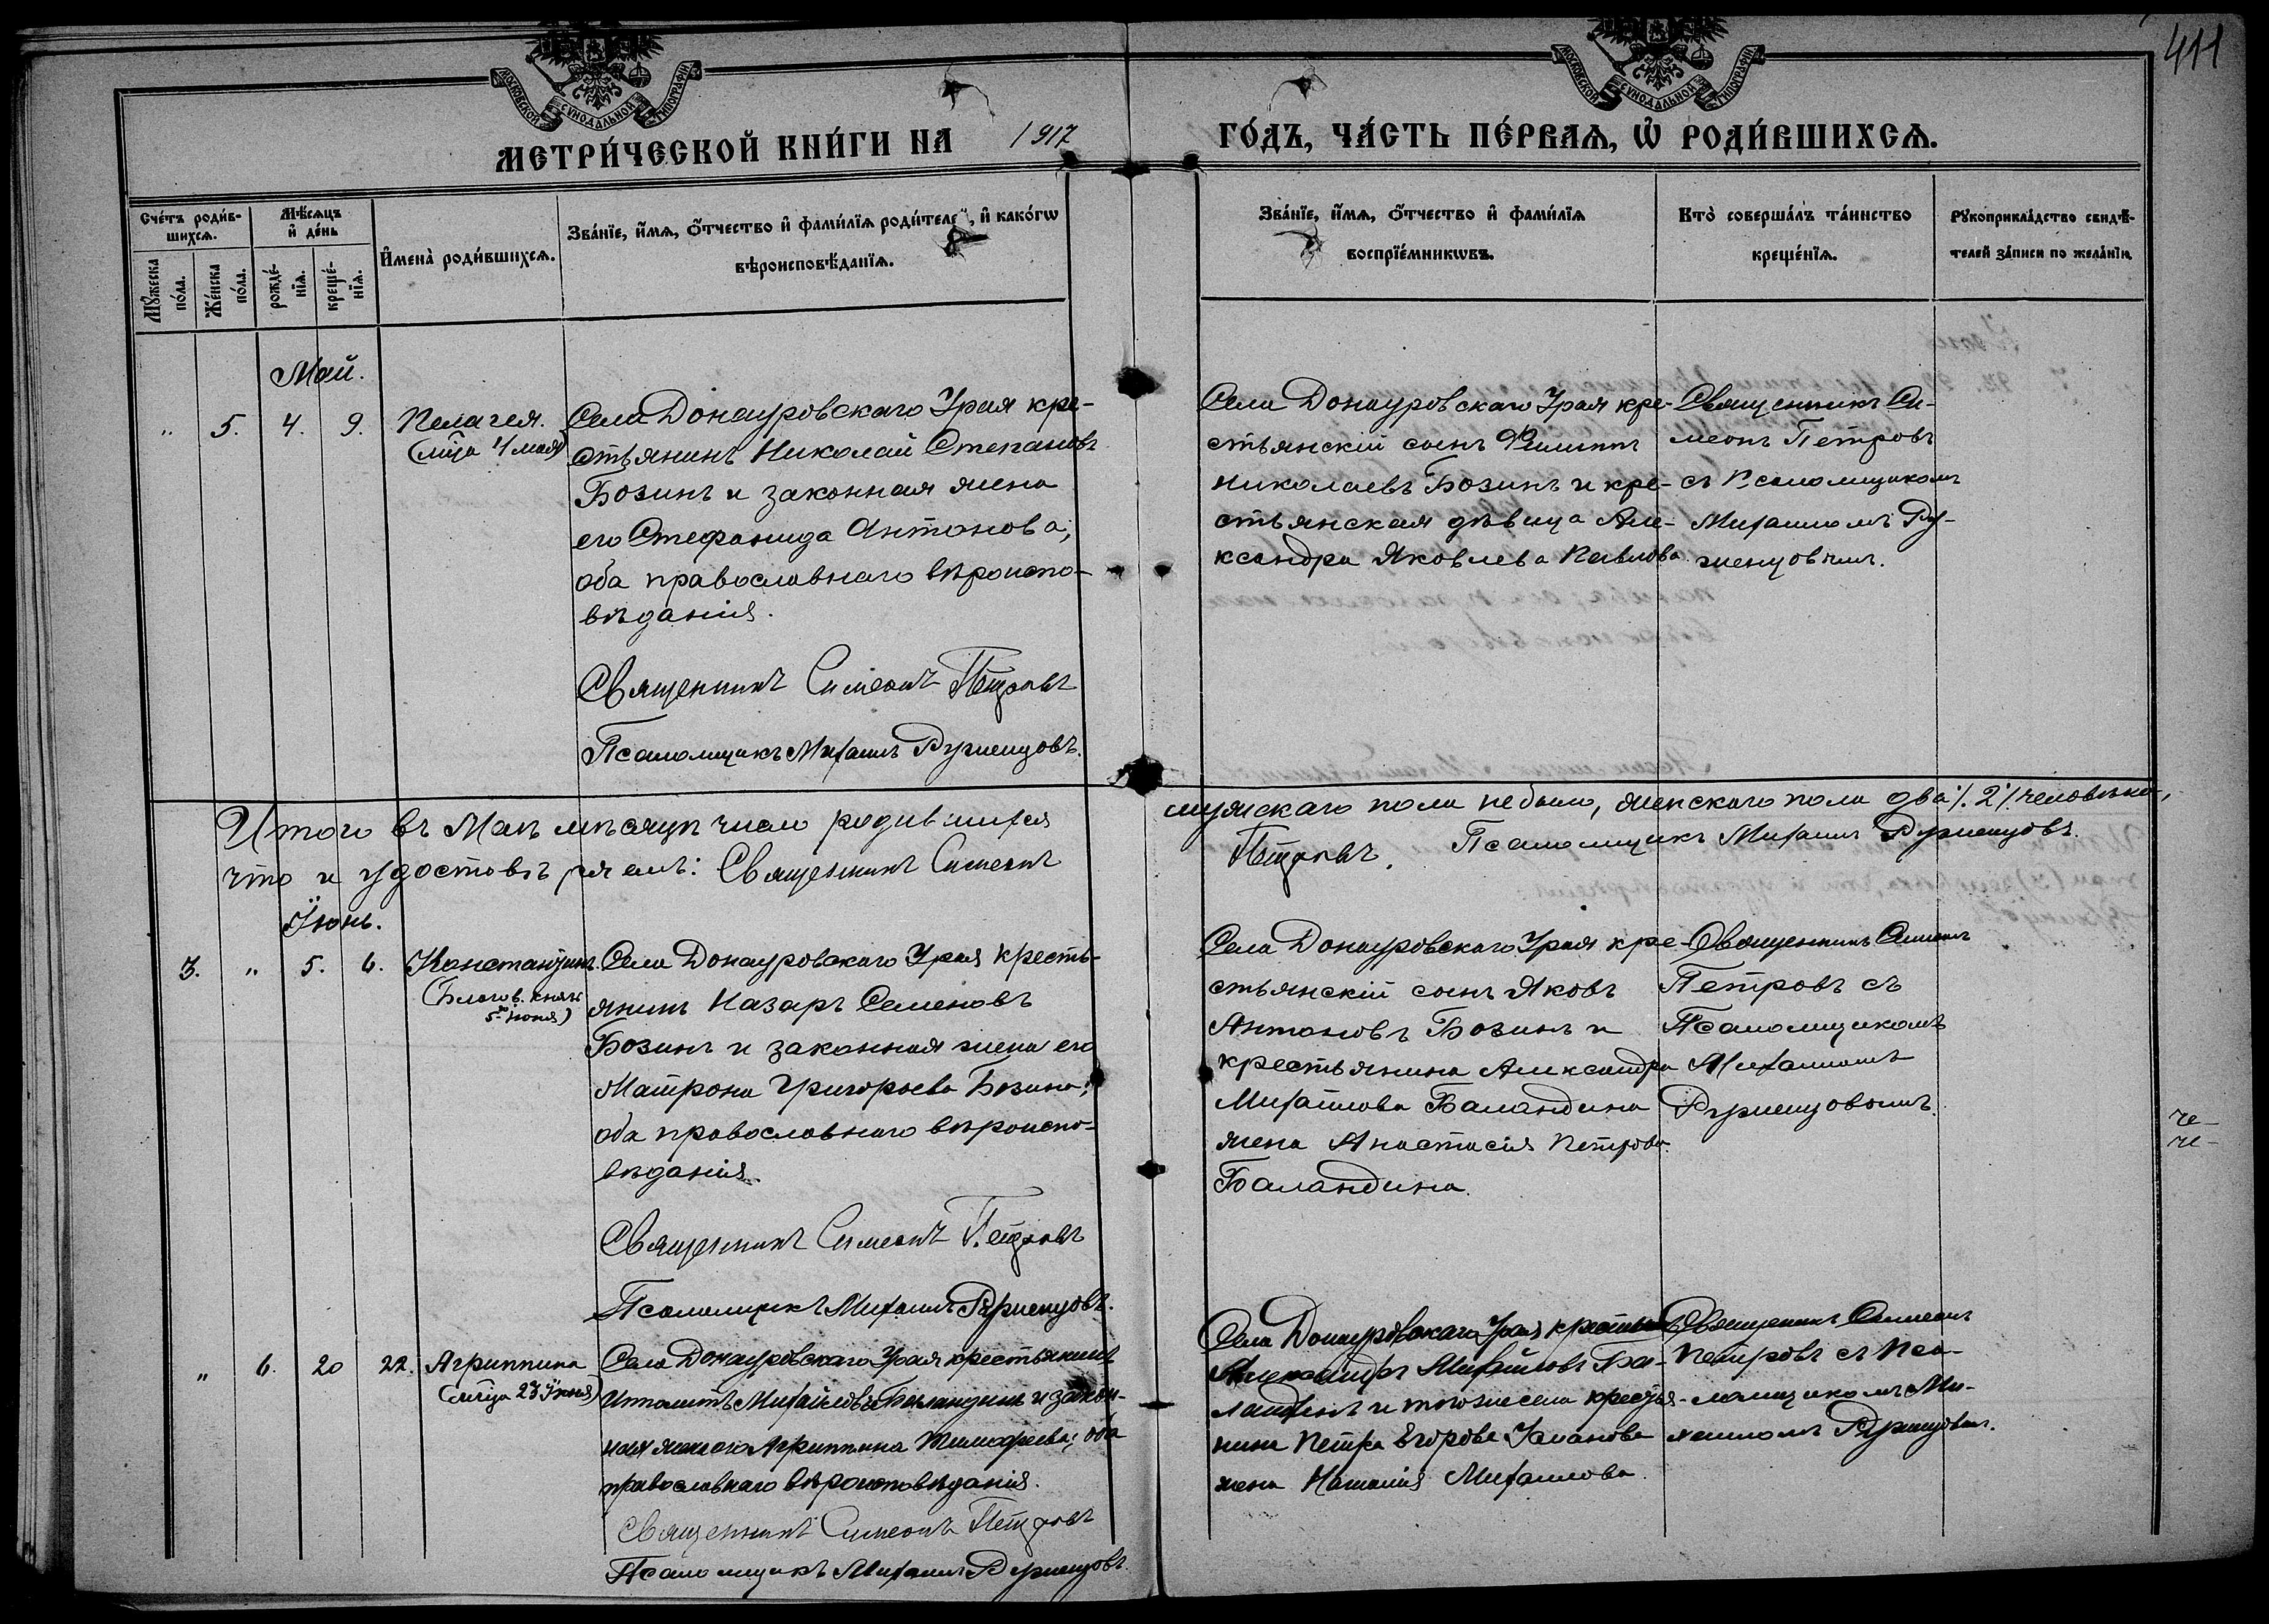 411
МОСКОВСКОЙ СУНОДАЛЬНОЙ ТИПОГРАФІИ
МОСКОВСКОЙ СУНОДАЛЬНОЙ ТИПОГРАФІИ
МЕТРИ́ЧЕСКОЙ КНИ́ГИ НА 1917 ГО́ДЪ, ЧА́СТЬ ПЕ́РВАЯ, Ѡ҆ РОДИ́ВШИХСЯ.
Сче́тъ роди́в-
шихся.
Мѣ́сяцъ
и҆ де́нь
Мꙋ́жеска
по́ла.
Же́нска
по́ла.
рожде́-
нїя.
креще́-
нїя.
И҆мена̀ роди́вшихся.
Зва́нїе, и҆́мя, ѻ҆́тчество и҆ фами́лїя роди́телей, и҆ како́гѡ
вѣроисповѣ́данїя.
Зва́нїе, и҆́мя, ѻ҆́тчество и҆ фами́лїя
воспрїе́мникѡвъ.
Кто̀ соверша́лъ та́инство
креще́нїя.
Рꙋкоприкла́дство свидѣ́-
телей за́писи по жела́нїю.
Май.
" 5. 4. 9.
Пелагея.
(мц̃а 4 мая)
Села Донауровскаго Урая кре-
стьянинъ Николай Степановъ
Бозинъ и законная жена
его Стефанида Антонова;
оба православнаго вѣроиспо-
вѣданія.
Священникъ Симеонъ Петровъ
Псаломщикъ Михаилъ Румянцовъ.
Села Донауровскаго Урая кре-
стьянскій сынъ Филиппъ
Николаевъ Бозинъ и кре-
стьянская дѣвица Але-
ксандра Яковлева Павлова.
Священникъ Си-
меонъ Петровъ
съ Псаломщикомъ
Михаиломъ Ру-
Итого въ Маѣ мѣсяцѣ число родившихся мужскаго пола не было, женскаго пола два /.2/. человѣка,
что и удостовѣряемъ: Священникъ Симеонъ Петровъ. Псаломщикъ Михаилъ
Іюнь.
3. " 5. 6.
Константинъ.
(Благов. князь
5го Іюня)
Села Донауровскаго Урая кресть-
янинъ Назаръ Семеновъ
Бозинъ и законная жена его
Матрона Григорьева Бозина;
оба православнаго вѣроиспо-
вѣданія.
Священникъ Симеонъ Петровъ
Псаломщикъ Михаилъ
Села Донауровскаго Урая кре-
стьянскій сынъ Яковъ
Антоновъ Бозинъ и
крестьянина Александра
Михайлова Баландина
жена Анастасія Петрова
Баландина.
Священникъ Симеонъ
Петровъ съ
Псаломщикомъ
Михаиломъ
че-
че-
" 6. 20 22.
Агриппина
(мч̃ца 23 Іюня)
Села Донауровскаго Урая крестьянинъ
Ипполитъ Михайловъ Баландинъ и закон-
ная жена его Агриппина Тимофеева; оба
православнаго вѣроисповѣданія.
Священникъ Симеонъ Петровъ
Псаломщикъ Михаилъ
Села Донауровскаго Урая
Александръ Михайловъ Ба-
ландинъ и тогоже села крестья-
нина Петра Егорова
жена Наталія Михаилова.
Священникъ Симеонъ
Петровъ съ Пса-
ломщикомъ Ми-
хаиломъ